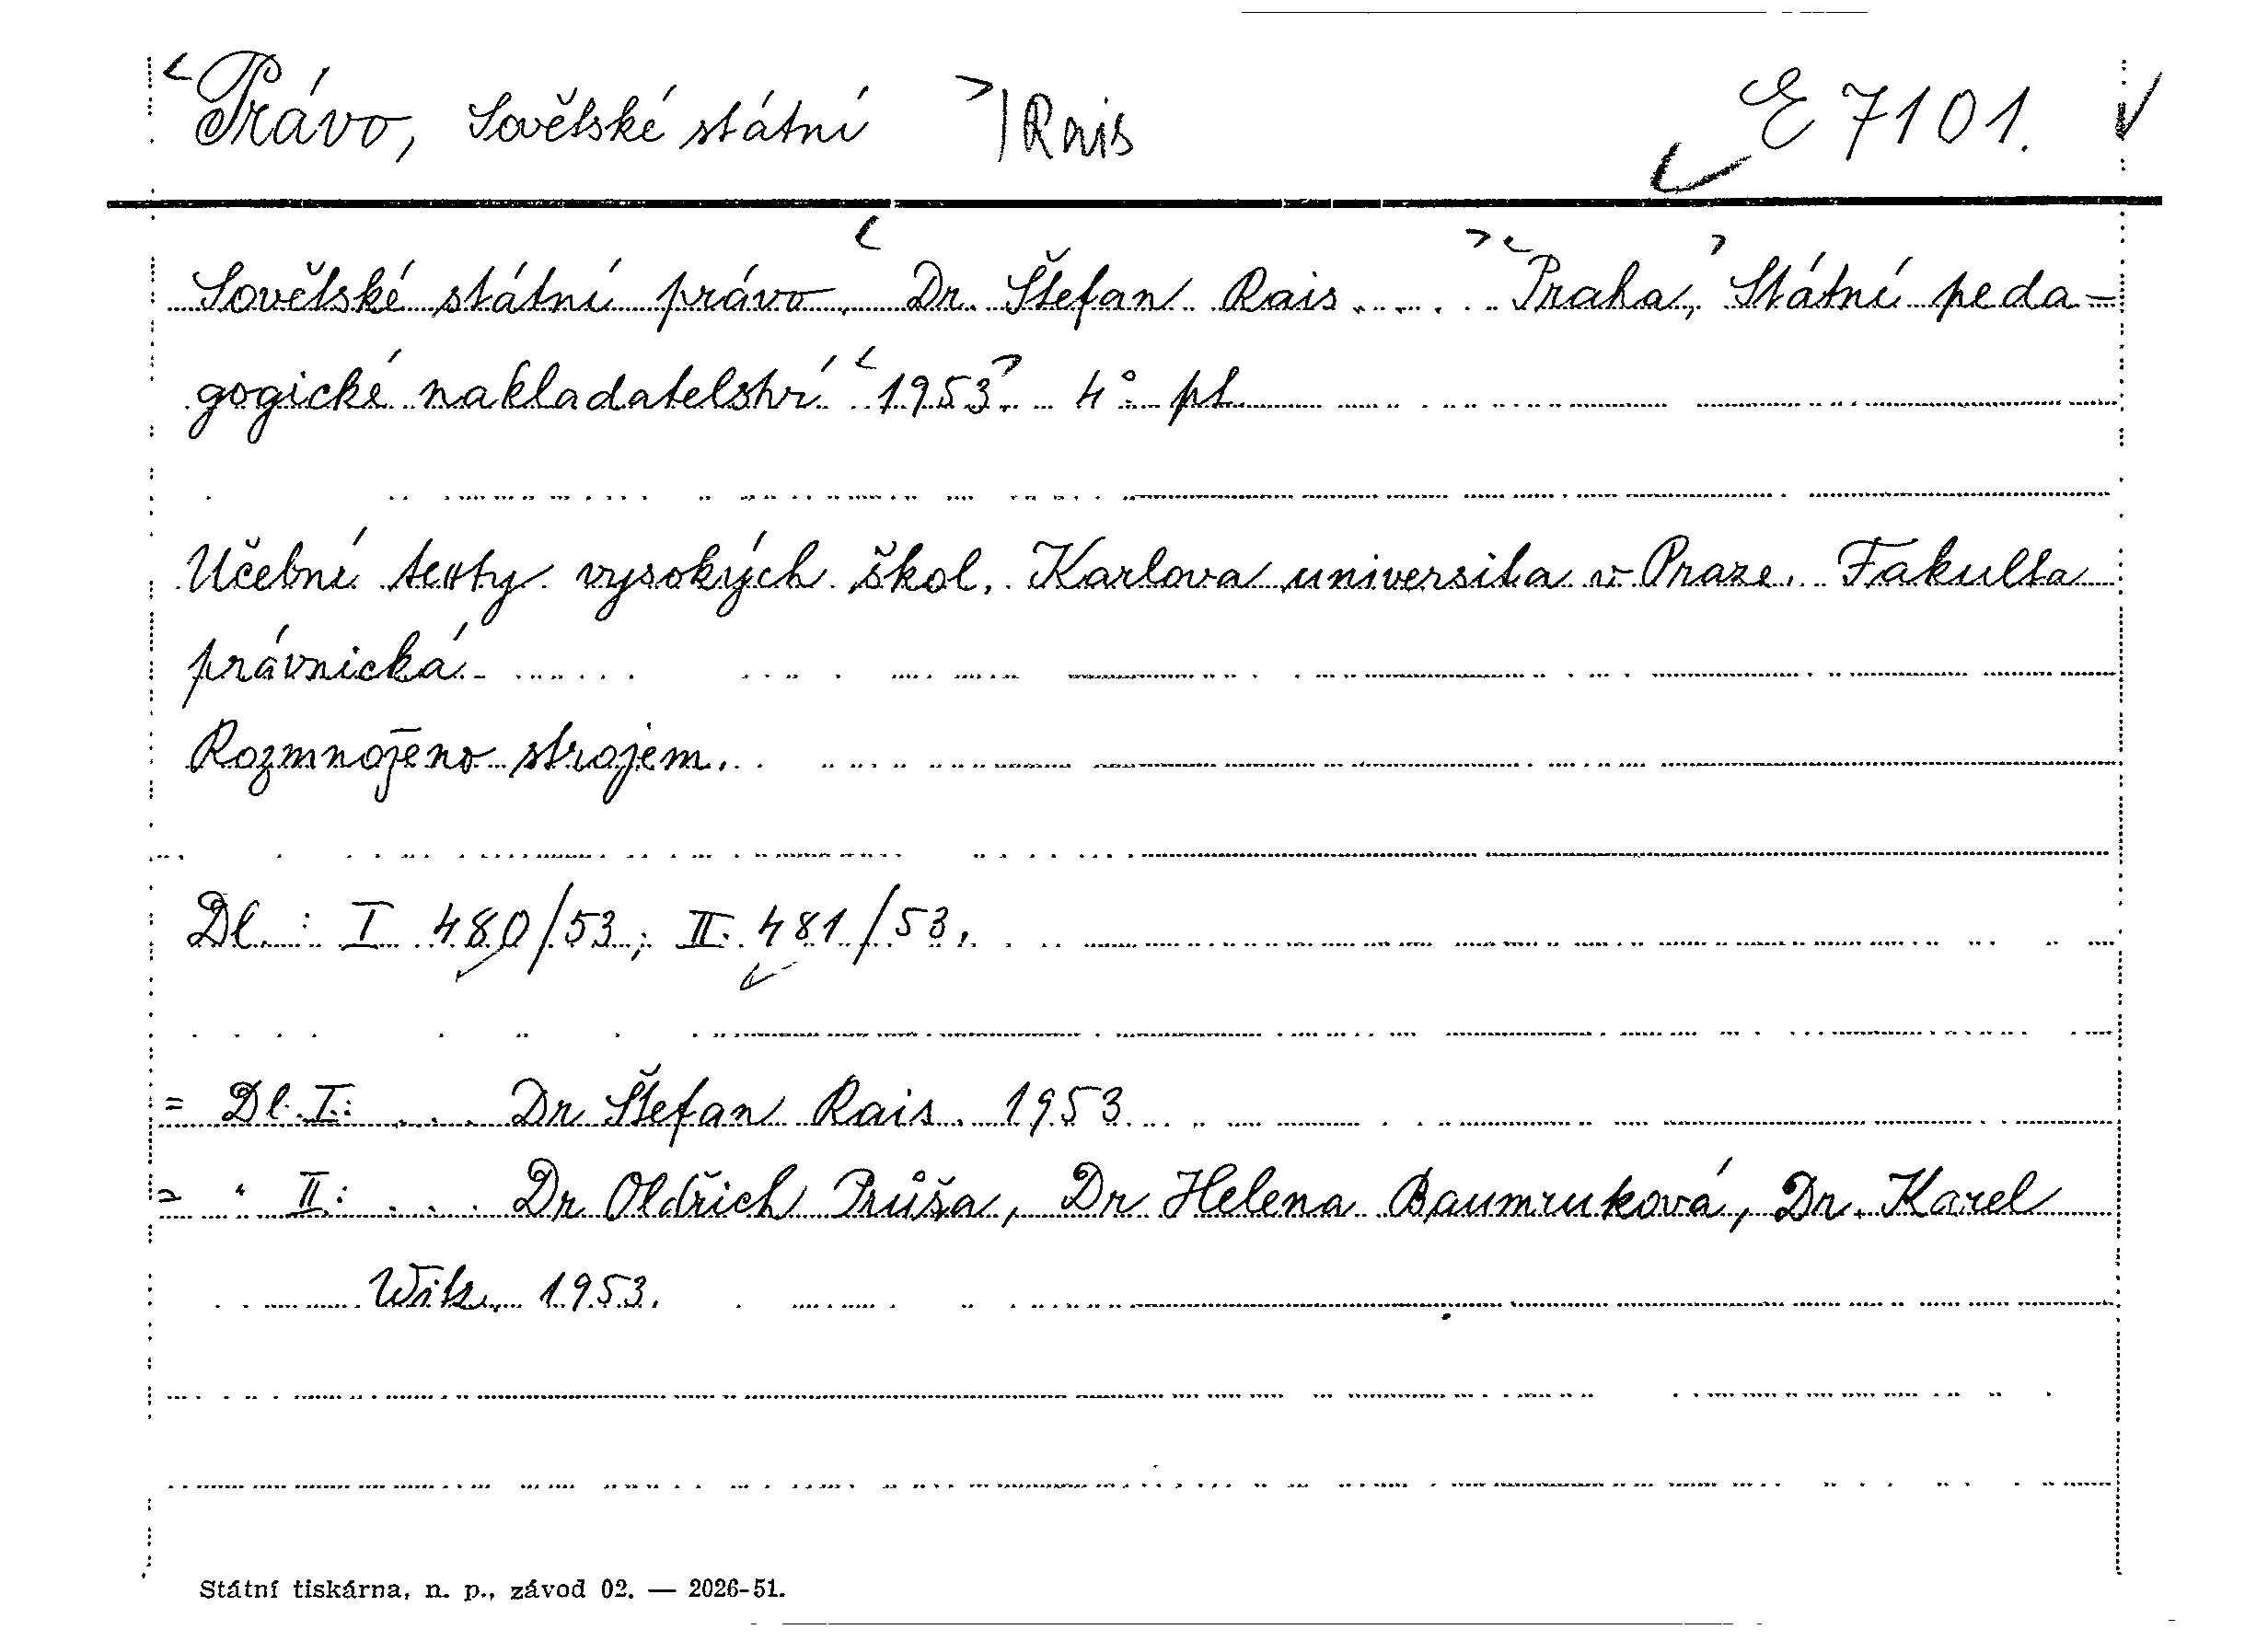 <Právo, Sovětské státní >/Rais E 7101.
Sovětské státní právo. <Dr. Štefan Rais . . . . .> <Praha,> Státní peda-
gogické nakladatelství <1953>. 4° pt.
Učební texty vysokých škol. Karlova universita v Praze. Fakulta
právnická.
Rozmnoženo strojem.
Dl.: I 480/53; II. 481/53.
= Dl. I.: . . . Dr Štefan Rais. 1953
= " II.: . . . Dr Oldřich Průša, Dr Helena Baumruková, Dr. Karel
1953.
Státní tiskárna, n. p., závod 02. — 2026-51.